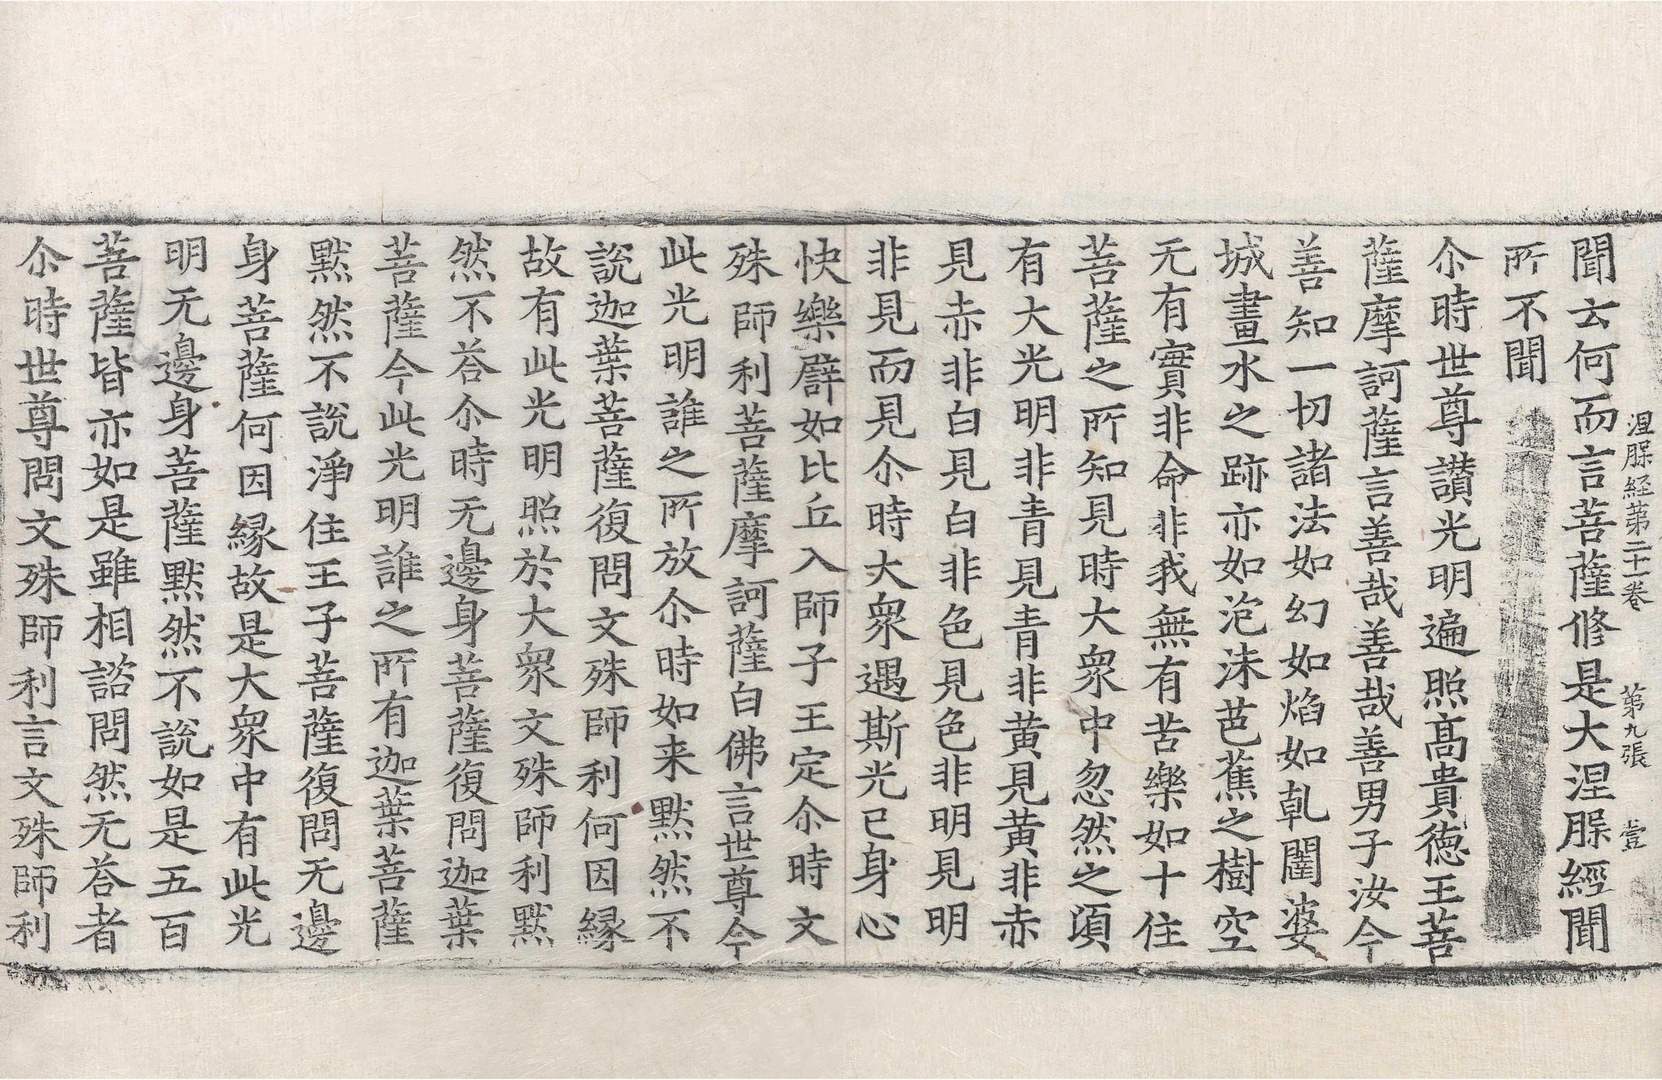 涅䏶経第二十一卷　第九張　壹
聞云何而言菩薩修是大涅䏶經聞
所不聞
尒時世尊讃光明遍照髙貴徳王菩
薩摩訶薩言善哉善哉善男子汝今
善知一切諸法如幻如焰如乹闥婆
城畫水之跡亦如泡沫芭蕉之樹空
无有實非命非我無有苦樂如十住
菩薩之所知見時大衆中忽然之頃
有大光明非青見青非黄見黄非赤
見赤非白見白非色見色非明見明
非見而見尒時大衆遇斯光已身心
快樂譬如比丘入師子王定尒時文
殊師利菩薩摩訶薩白佛言世尊今
此光明誰之所放尒時如来黙然不
説迦葉菩薩復問文殊師利何因縁
故有此光明照於大衆文殊師利黙
然不荅尒時无邊身菩薩復問迦葉
菩薩今此光明誰之所有迦葉菩薩
黙然不說淨住王子菩薩復問无邊
身菩薩何因縁故是大衆中有此光
明无邊身菩薩黙然不說如是五百
菩薩皆亦如是雖相諮問然无荅者
尒時世尊問文殊師利言文殊師利